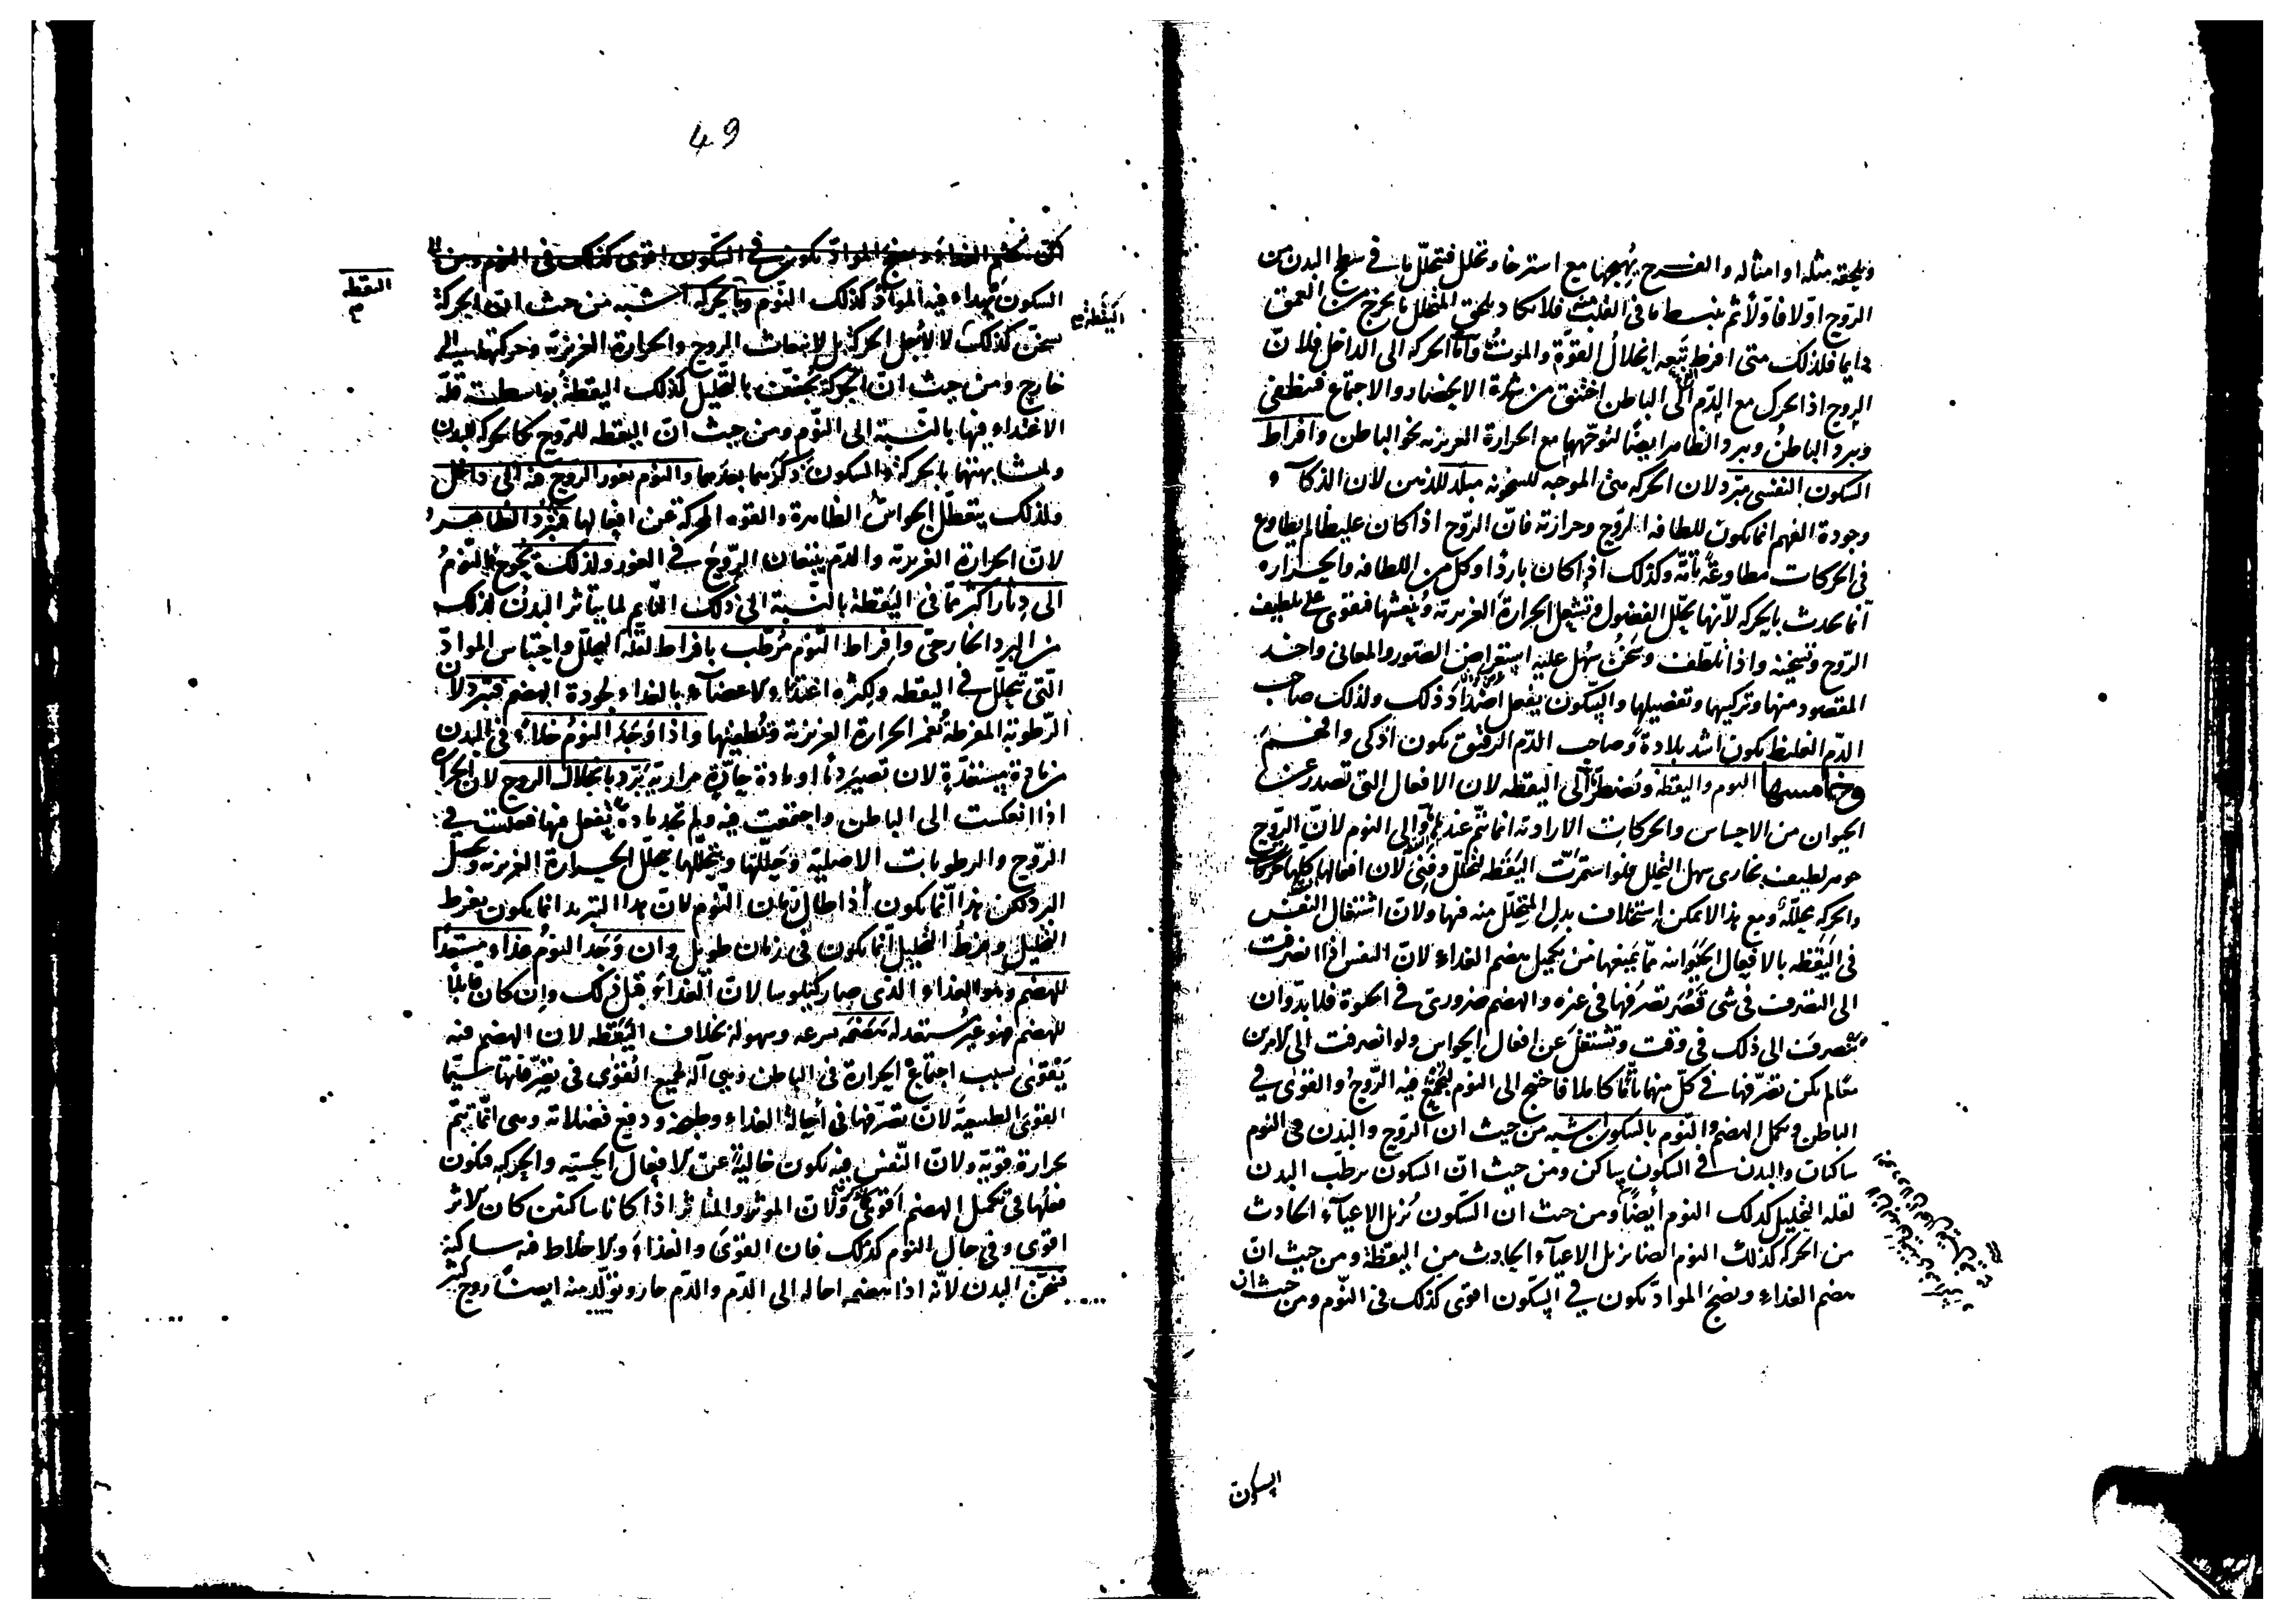 ويلحقه مثله او امثاله والفرح يُهيجها مع استرخاء وتخلل فيتحلل ما في سطح البدن من
الروح اولا فاولا ثم ينبسط ما في القلب منه فلا يكاد يلحق المتحلل ما يخرج من العمق
دايما فلذلك متى افرط تبعه انحلال القوة والموت واما الحركة الى الداخل فلان
الروح اذا تحرك مع الدم الى الباطن اختنق من شدة الانحصار والاجتماع فينطفى
ويبرد الباطن ويبرد الظاهر ايضا لتوجهها مع الحرارة الغريزيه نحو الباطن وافراط
السكون النفسى مبرد لان الحركه هى الموجبه للسخونه مبلد للذهن لان الذكاء و
وجودة الفهم انما يكون للطافه الروح وحرارته فان الروح اذا كان غليظا لم يطاوع
فى الحركات مطاوعة تامة وكذلك اذا كان باردا وكل من اللطافه والحراره
انما يحدث بالحركه لانها تحلل الفضول وتشعل الحرارة الغريزية وتنعشها فتقوى على تلطيف
الروح وتسخينه واذا تلطف وسخن سهل عليه استعراض الصور والمعانى واخذ
المقصود منها وتركيبها وتفصيلها والسكون يفعل اضداد ذلك ولذلك صاحب
الدم الغليظ يكون اشد بلادة وصاحب الدم الرقيق يكون اذكى وافهم
وخامسها النوم واليقظة ونضطر الى اليقظه لان الافعال التى تصدر عن
الحيوان من الاحساس والحركات الارادية انما تتم عندها والى النوم لان الروح
جوهر لطيف بخارى سهل التحلل فلو استمرت اليقظه لتحلل وفنى لان افعالها كلها حركات
والحركه محللة ومع هذا لا يمكن استخلاف بدل المتحلل منه فيها ولان اشتغال النفس
فى اليقظه بالافعال الحيوانيه مما يمنعها من تكميل هضم الغداء لان النفس اذا انصرفت
الى التصرف فى شى قصر تصرفها فى غيره والهضم ضرورى فى الحيوة فلا بد وان
تنصرف الى ذلك فى وقت وتشتغل عن افعال الحواس ولو انصرفت الى الامرين
معا لم يكن تصرفها فى كل منهما تاما كاملا فاحتيج الى النوم ليجتمع فيه الروح والقوى فى
الباطن ويكمل الهضم والنوم بالسكون اشبه من حيث ان الروح والبدن فى النوم
ساكنان والبدن فى السكون ساكن ومن حيث ان السكون يرطب البدن
لقله التحليل كذلك النوم ايضا ومن حيث ان السكون يزيل الاعياء الحادث
من الحركه كذلك النوم ايضا يزيل الاعياء الحادث من اليقظة ومن حيث ان
هضم الغداء ونضج المواد يكون فى السكون اقوى كذلك فى النوم ومن حيث ان
السكون
49
هضم الغداء ونضج المواد يكون فى السكون اقوى كذلك فى النوم ومن
السكون تهداء فيه المواد كذلك النوم وبالحركه اشبه من حيث ان الحركة
اليقظة
تسخن كذلك لا لاجل الحركة بل لانبعاث الروح والحرارة الغريزية وحركتهما الى
خارج ومن حيث ان الحركة تجفف بالتحليل كذلك اليقظة بواسطة قلة
الاغتذاء فيها بالنسبة الى النوم ومن حيث ان اليقظه للروح كالحركه للبدن
ولمشابهتهما بالحركة والسكون ذكرهما بعدهما والنوم يغور الروح فيه الى داخل
ولذلك يتعطل الحواس الظاهرة والقوه المحركة عن افعالها فيبرد الظاهر
لان الحرارة الغريزية والدم يتبعان الروح فى الغور ولذلك يحوج النوم
الى دثار اكثر مما فى اليقظة بالنسبة الى ذلك النايم لما يتاثر البدن بذلك
من البرد الخارجى وافراط النوم مُرطب بافراط لقلة التحلل واحتباس المواد
التى تتحلل فى اليقظه ولكثرة اغتذاء الاعضاء بالغداء لجودة الهضم فيبرد لان
الرطوبة المفرطة تغمر الحرارة الغريزية وتطفيها واذا وجد النوم خلاء فى البدن
من مادة مستعدة لان تصير دما او مادة حارة مرارية يبرد بانحلال الروح لان الحرارة
اذا انعكست الى الباطن واجتمعت فيه ولم تجد مادة تفعل فيها فعلت فى
الروح والرطوبات الاصلية وحللتها وبتحللها يتحلل الحرارة الغريزيه ويحصل
البرد لكن هذا انما يكون اذا طال زمان النوم لان هذا التبريد انما يكون بفرط
التحليل وفرط التحليل انما يكون فى زمان طويل وان وجد النوم غذاء مستعدا
للهضم وهو الغذاء الذى صار كيلوسا لان الغذاء قبل ذلك وان كان قابلا
للهضم فهو غير مستعد له هضمه بسرعه وسهولة بخلاف اليقظه لان الهضم فيه
يقوى بسبب اجتماع الحرارة فى الباطن وهى آلة لجميع القوى فى تصرفاتها سيما
القوى الطبيعية لان تصرفها فى احالة الغذاء وطبخه ودفع فضلاته وهى انما تتم
بحرارة قوية ولان النفس فيه يكون خالية عن الافعال الحسيه والحركيه فيكون
فعلها فى تكميل الهضم اقوى ولان الموثر والمتاثر اذا كانا ساكنين كان الاثر
اقوى وفى حال النوم كذلك فان القوى والغذاء والاخلاط فيه ساكنة
فيسخن البدن لانه اذا هضمه احاله الى الدم والدم حار ويتولد منه ايضا روح كثير
اليقظة